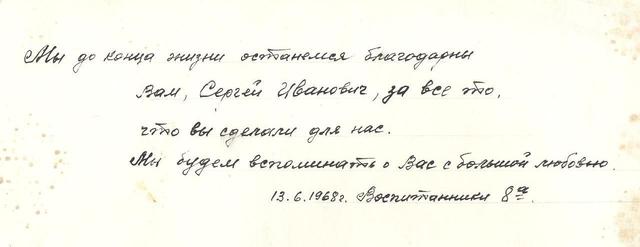 Мы до конца жизни останемся благодарны
Вам, Сергей Иванович, за все то,
что вы сделали для нас.
Мы будем вспоминать о Вас с большой любовью.
13.6.1968г. Воспитанники 8а.